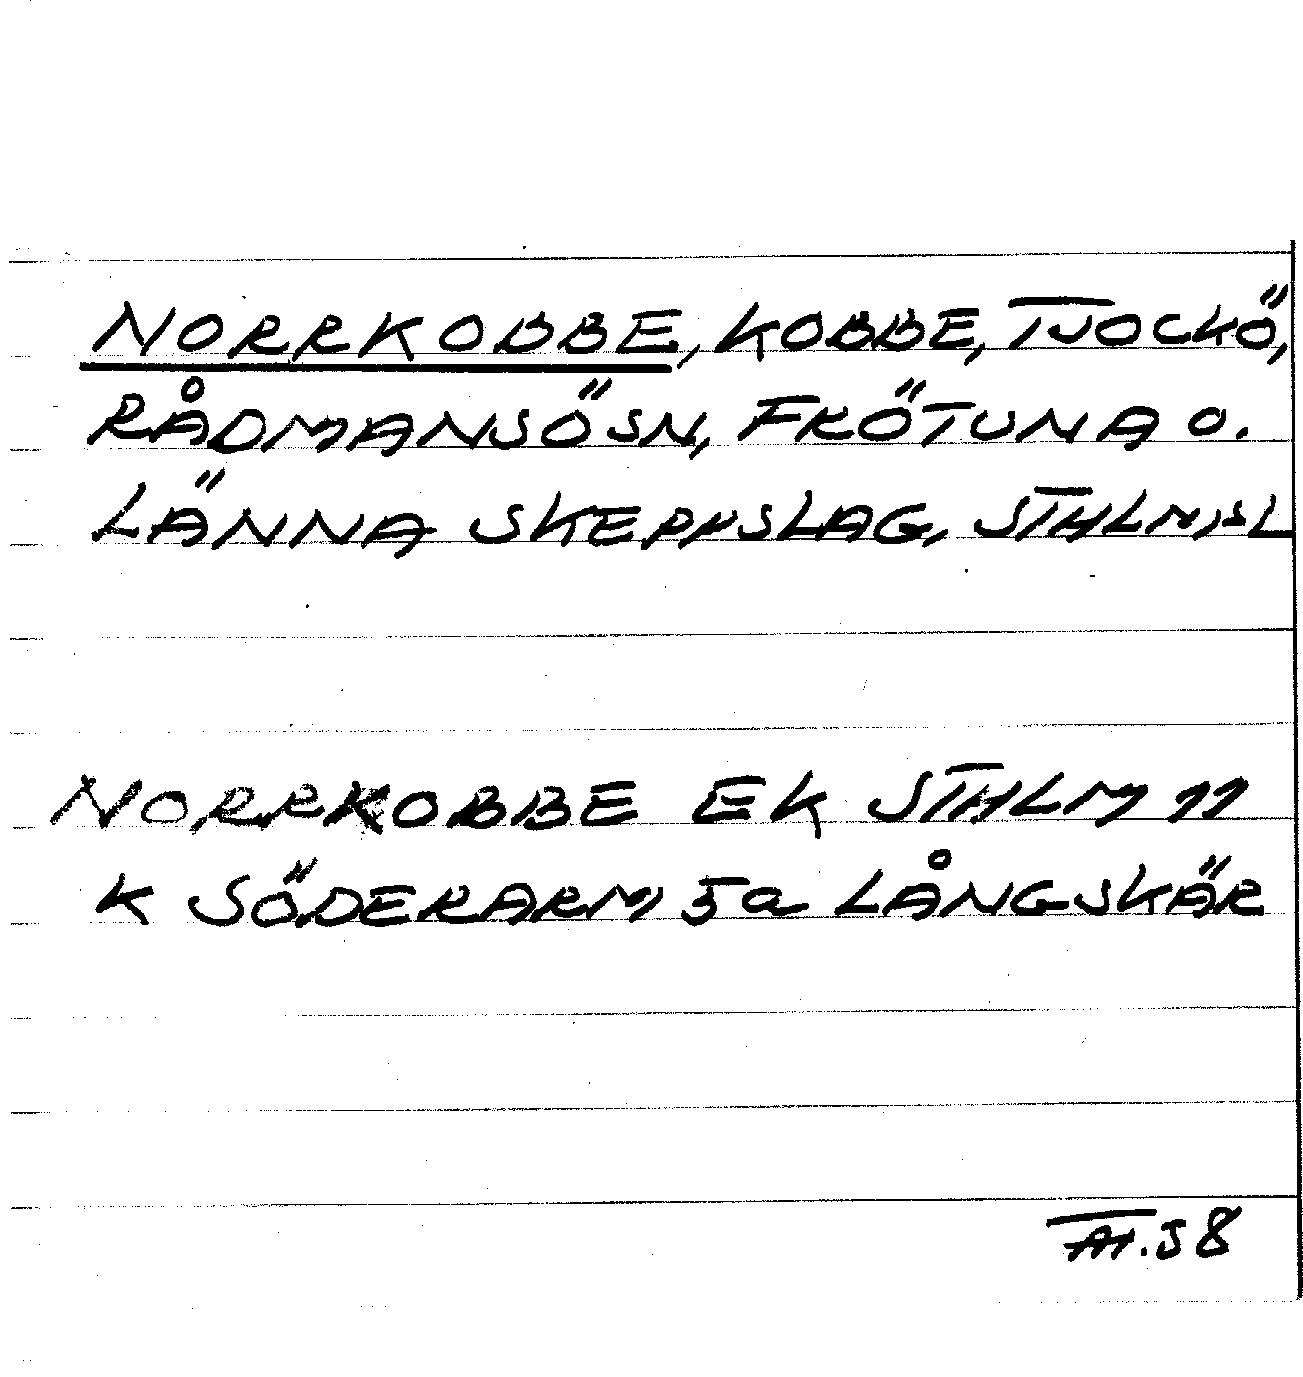 NORRKOBBE, KOBBE, TJOCKÖ,
RÅDMANSÖ SN, FRÖTUNA O.
LÄNNA SKEPPSLAG, STHLMSL
NORRKOBBE EK STHLM 11
K SÖDERARM 5a LÅNGSKÄR